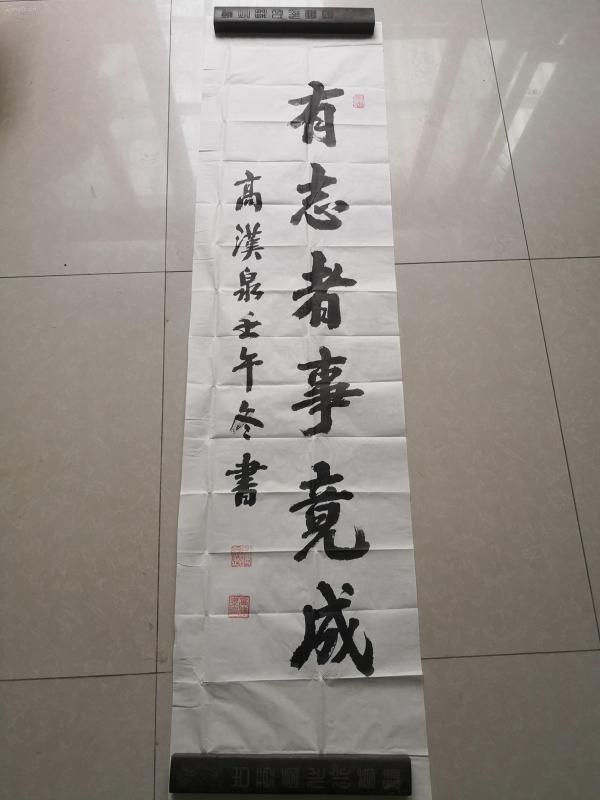 有志者事竟成
高漢泉壬午冬書